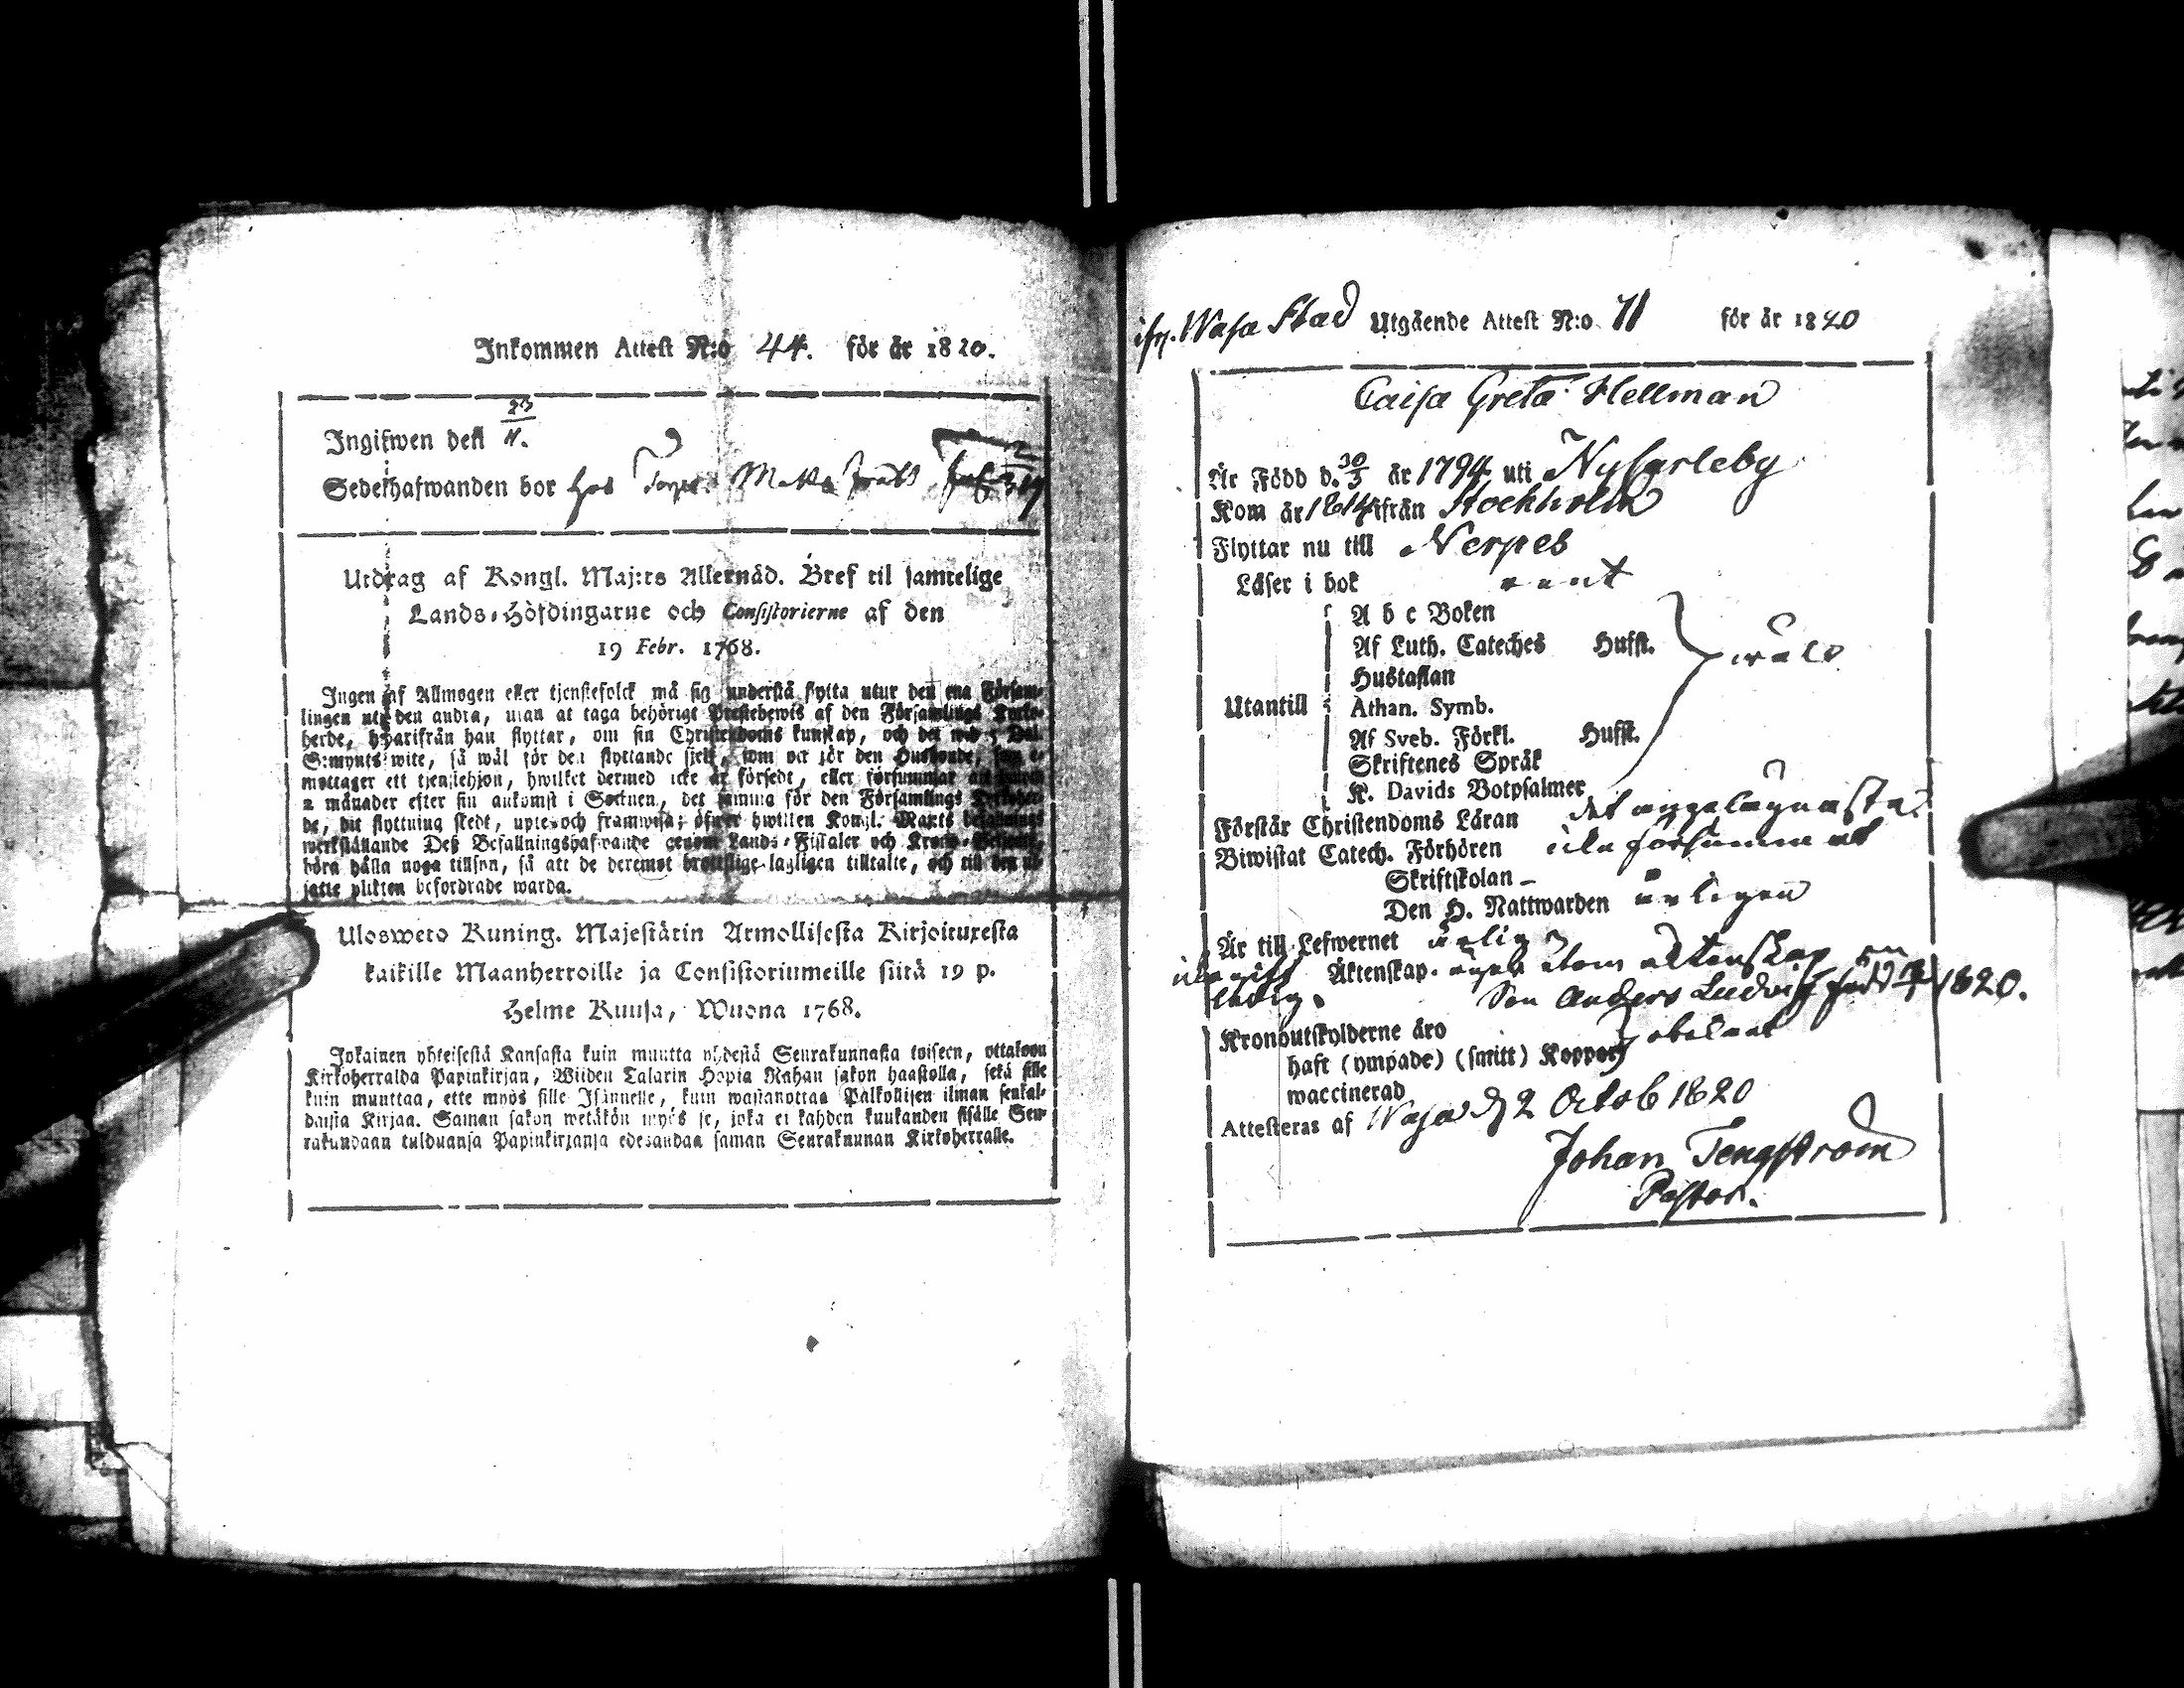 Inkommen Attest N:o 44. för år 1820.
Ingifwen den 23/11.
Sedelhafwanden bor hos
Utdrag af Kongl. Maj:ts Allernåd. Bref til samtelige
Lands-Höfdingarne och Consistorierne af den
19 Febr. 1768.
Ingen af Allmogen eller tjenstefolck må sig understå flytta utur den ena Försam-
lingen uti den andra, utan at taga behörigt Prestebewis af den Församlings Kyrko-
herde, hwarifrån han flyttar, om sin Christendoms kunskap, och det wid 5 Dal.
S:mynts wite, så wäl för den flyttande sjelf, som ock för den Husbonde, som e-
mottager ett tjenstehjon, hwilket dermed icke är försedt, eller försummar att inom
2 månader efter sin ankomst i Socknen, det samma för den Församlings Kyrkoher-
de, dit flyttning skedt, upte och framwisa; öfwer hwilken Kongl. Maj:ts befallnings
werkställande Deß Befallningshafwande genom Lands-Fiskaler och Krono-Betjente,
böra hålla noga tillsyn, så att de deremot brottslige lagligen tilltalte, och till den ut-
satte plikten befordrade warda.
Ulosweto Kuning. Majestätin Armollisesta Kirjoituxesta
kaikille Maanherroille ja Consistoriumeille siitä 19 p.
Helme Kuusa, Wuona 1768.
Jokainen yhteisestä Kansasta kuin muutta yhdestä Seurakunnasta toiseen, ottakoon
Kirkoherralda Papinkirjan, Wiiden Talarin Hopia Rahan sakon haastolla, sekä sille
kuin muuttaa, ette myös sille Isännelle, kuin wastanottaa Palkollisen ilman senkal-
daista Kirjaa. Saman sakon wetäkön myös se, joka ei kahden kuukauden sisälle Seu-
rakundaan tulduansa Papinkirjansa edesandaa saman Seurakunnan Kirkoherralle.
ifr. Wasa Stad Utgående Attest N:o 71 för år 1820
Caisa Greta Hellman
Är Född d. 30/3 år 1794 uti Nykarleby
Kom år 1814 ifrån Stockholm
Flyttar nu till Nerpes
Läser i bok rent
A b c Boken
Af Luth. Cateches Hufst.
wäl
Hustaflan
Utantill Athan. Symb.
Af Sveb. Förkl. Hufst.
Skriftenes Språk
K. Davids Botpsalmer
Förstår Christendoms Läran det angelägnaste
Biwistat Catech. Förhören icke försummat
Skriftskolan –
Den H. Nattwarden årligen
Är till Lefwernet ärlig
Äktenskap. ogift ledig. äger utom äktenskap en
Son Anders Ludvig född 1820.
Kronoutskylderne äro obetalat
haft (ympade) (smitt) Koppor
waccinerad
Attesteras af Wasa d 2 Octob 1820
Johan Tengström
Pastor.